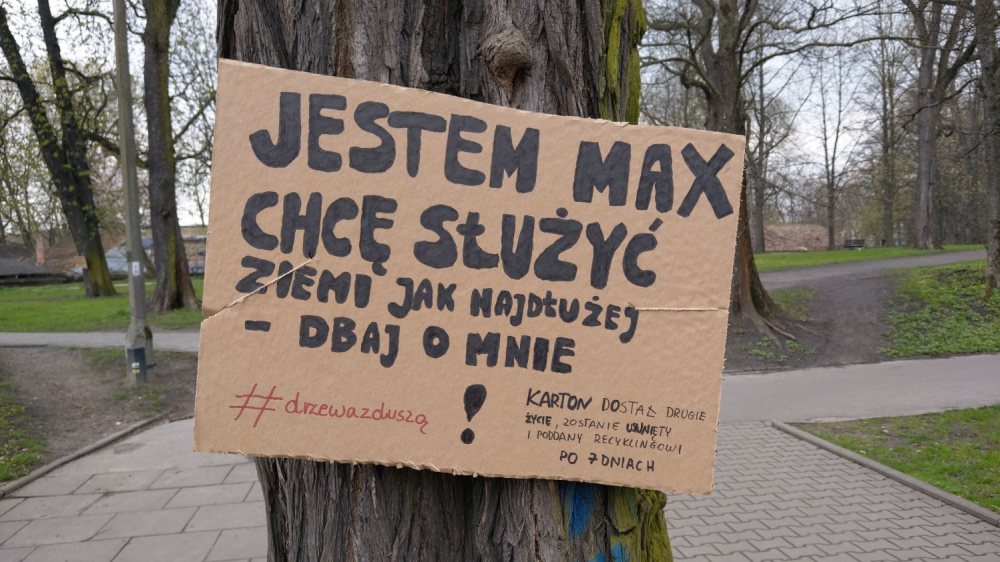 JESTEM MAX
CHCĘ SŁUŻYĆ
ZIEMI JAK NAJDŁUŻEJ
- DBAJ O MNIE
!
#drzewazduszą
KARTON DOSTAŁ DRUGIE
ŻYCIE, ZOSTANIE USUNIĘTY
I PODDANY RECYKLINGOWI
PO 7 DNIACH